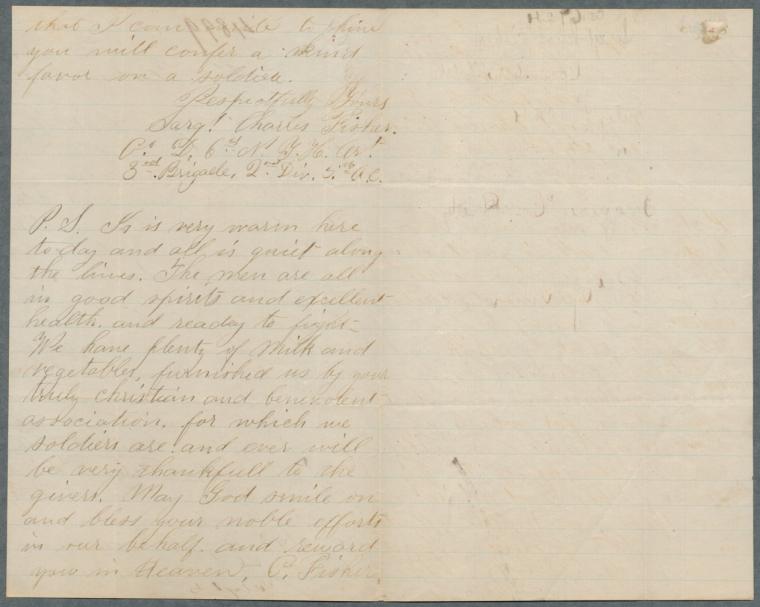 that I can
you will confer a kind
favor on a soldier.
Respectfully Yours
Sargt. Charles Fisher.
Co. D, 6th N. Y. H. Art.
3rd Brigade, 2nd Div. 5th A.C.
P. S. Is is very warm here
to-day and all is quiet along
the lines. The men are all
in good spirits and excellent
health. and ready to fight-
We have plenty of Milk and
vegetables, furnished us by your
truly christian and benevolent
association. for which we
soldiers are. and ever will
be very thankfull to the
givers. May God smile on
and bless your noble efforts
in our behalf. and reward
you in Heaven, C. Fisher,